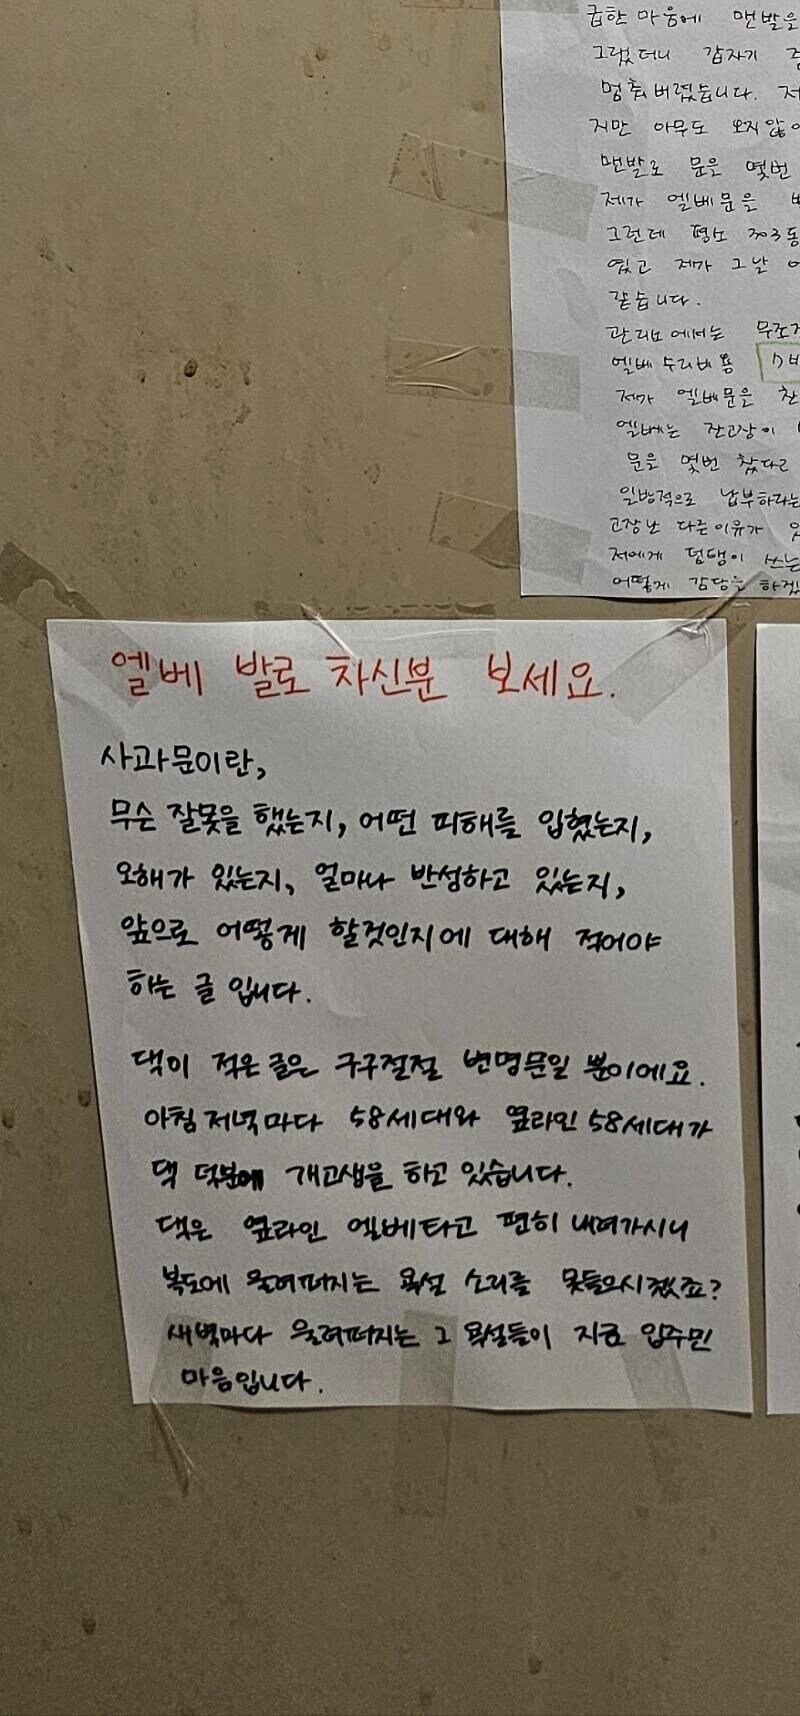 급한 마음에 맨발을
그랬더니 갑자기
멈춰버렸습니다. 저
지만 아무도 오지않아
맨발로 문을 몇번
제가 엘베문을
그런데 평소 303동
였고 제가 그날
같습니다.
관리소에서는 무조건
엘베 수리비용
제가 엘베문을 찬
엘베는 잔고장이
문을 몇번 찼다고
일방적으로 납부하라는
고장난 다른이유가
저에게 덤탱이 쓰는
어떻게 감당을 하겠
엘베 발로 차신분 보세요.
사과문이란,
무슨 잘못을 했는지, 어떤 피해를 입혔는지,
오해가 있는지, 얼마나 반성하고 있는지,
앞으로 어떻게 할것인지에 대해 적어야
하는 글입니다.
댁이 적은글은 구구절절 변명문일 뿐이에요.
아침저녁마다 58세대와 옆라인 58세대가
댁 덕분에 개고생을 하고 있습니다.
댁은 옆라인 엘베타고 편히 내려가시니
복도에 울려퍼지는 욕설 소리를 못들으시겠죠?
새벽마다 울려퍼지는 그 욕설들이 지금 입주민
마음입니다.